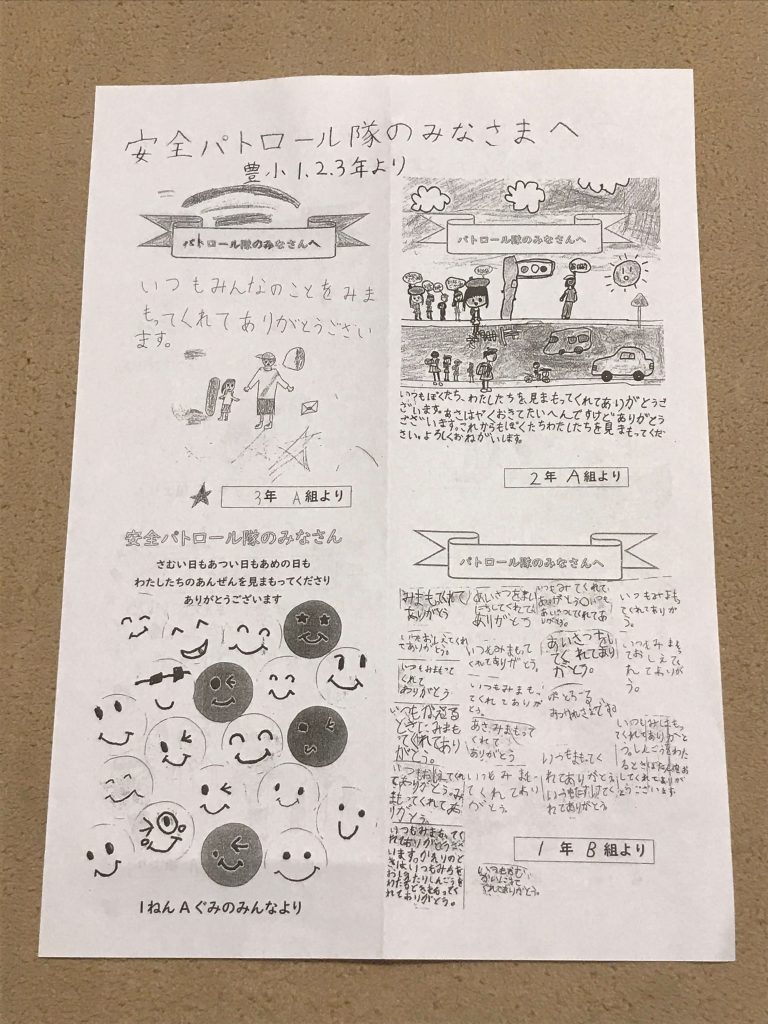 安全パトロール隊のみなさまへ
豊小1.2.3年より
パトロール隊のみなさんへ
いつもみんなのことをみま
もってくれてありがとうござい
ます。
3年 A組より
パトロール隊のみなさんへ
いつもぼくたち、わたしたちを見まもってくれてありがとうご
ざいます。あさはやくおきてたいへんですけどありがとう
ございます。これからもぼくたちわたしたちを見まもってくだ
さい。よろしくおねがいします。
2年 A組より
安全パトロール隊のみなさん
さむい日もあつい日もあめの日も
わたしたちのあんぜんを見まもってくださり
ありがとうございます
1ねんAぐみのみんなより
パトロール隊のみなさんへ
みまもってくれて
ありがとう
あいさつをまい
にちしてくれて
ありがとう
いつもみまもっ
てくれてありが
とう。
いつもおしえてくれ
てありがとう。
いつもみまもって
くれてありがとう。
あいさつをし
てくれてあり
がとう。
いつもみまもって
くれて
ありがとう
いつもみまも
ってくれてありがと
う。
あさみまもって
くれて
ありがとう
いつもみま
ってくれてあり
がとう。
いつもまもってく
れてありがとう
くれてありがとう
1年 B組より